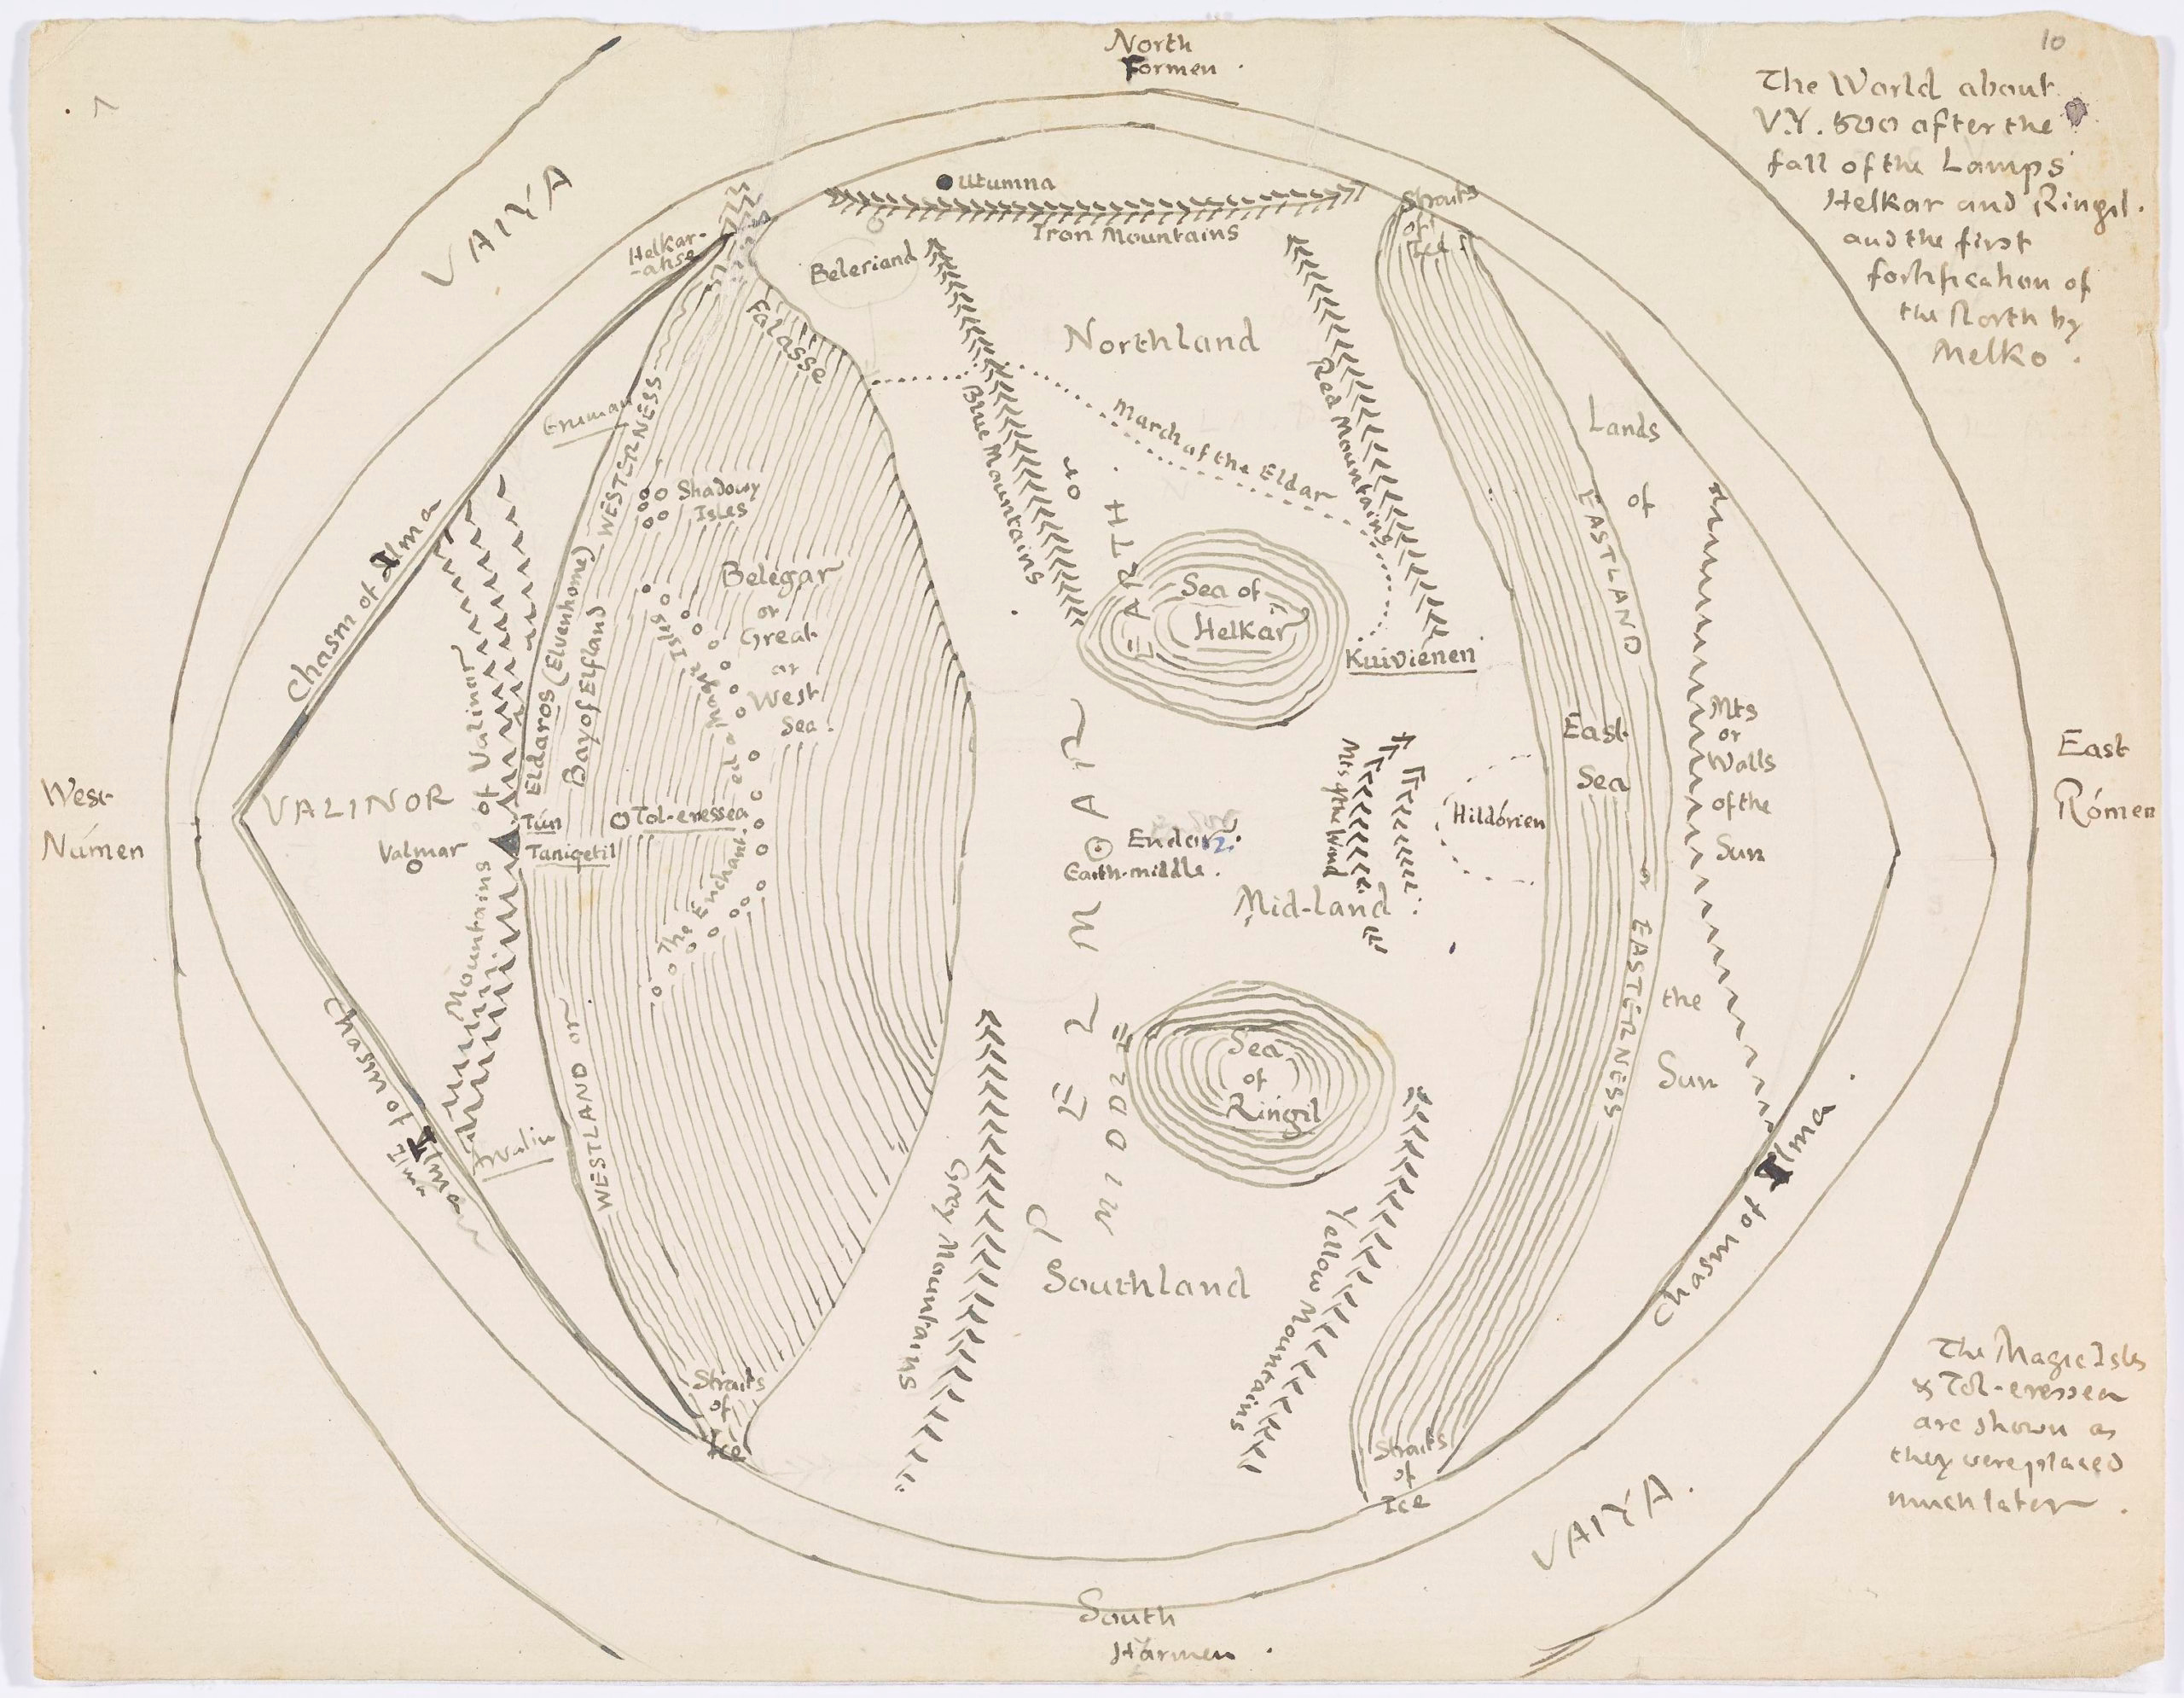 North
Formen.
10
The World about
V.Y. 500 after the
fall of the Lamps
Helkar and Ringil.
and the first
fortification of
the North by
Melko.
VAIYA
Utumna
Iron Mountains
Straits
of
Ice.
Helkar-
-akse
Beleriand
Falasse
Northland
Eruman
WESTERNESS
Blue Mountains
March of the Eldar
Red Mountains
Lands
of
the
Sun
EASTLAND
or EASTERNESS
Shadowy
Isles
Chasm of Ilma
Belegar
or
Great
or
West
Sea.
The Enchanted or Magic Isles
or
EARTH
Sea of
Helkar
Kuiviénen
Mountains of Valinor
Eldaros (Elvenhome)
Bay of Elfland
East
Sea
Mts
or
Walls
of the
Sun
West
Númen
East
Rómen
VALINOR
Valmar
Tún
Taniqetil
Tol-eressea
Endor
Earth-middle.
Mts of the Wind
Hildórien
Mid-land
PELMAR
MIDDLE
Sea
of
Ringil
Chasm of Ilma
Ilma
WESTLAND or
Grey Mountains
Southland
Yellow Mountains
Chasm of Ilma
Straits
of
Ice
Straits
of
Ice
VAIYA.
The Magic Isles
& Tol-eressea
are shown as
they were placed
much later.
South
Harmen.